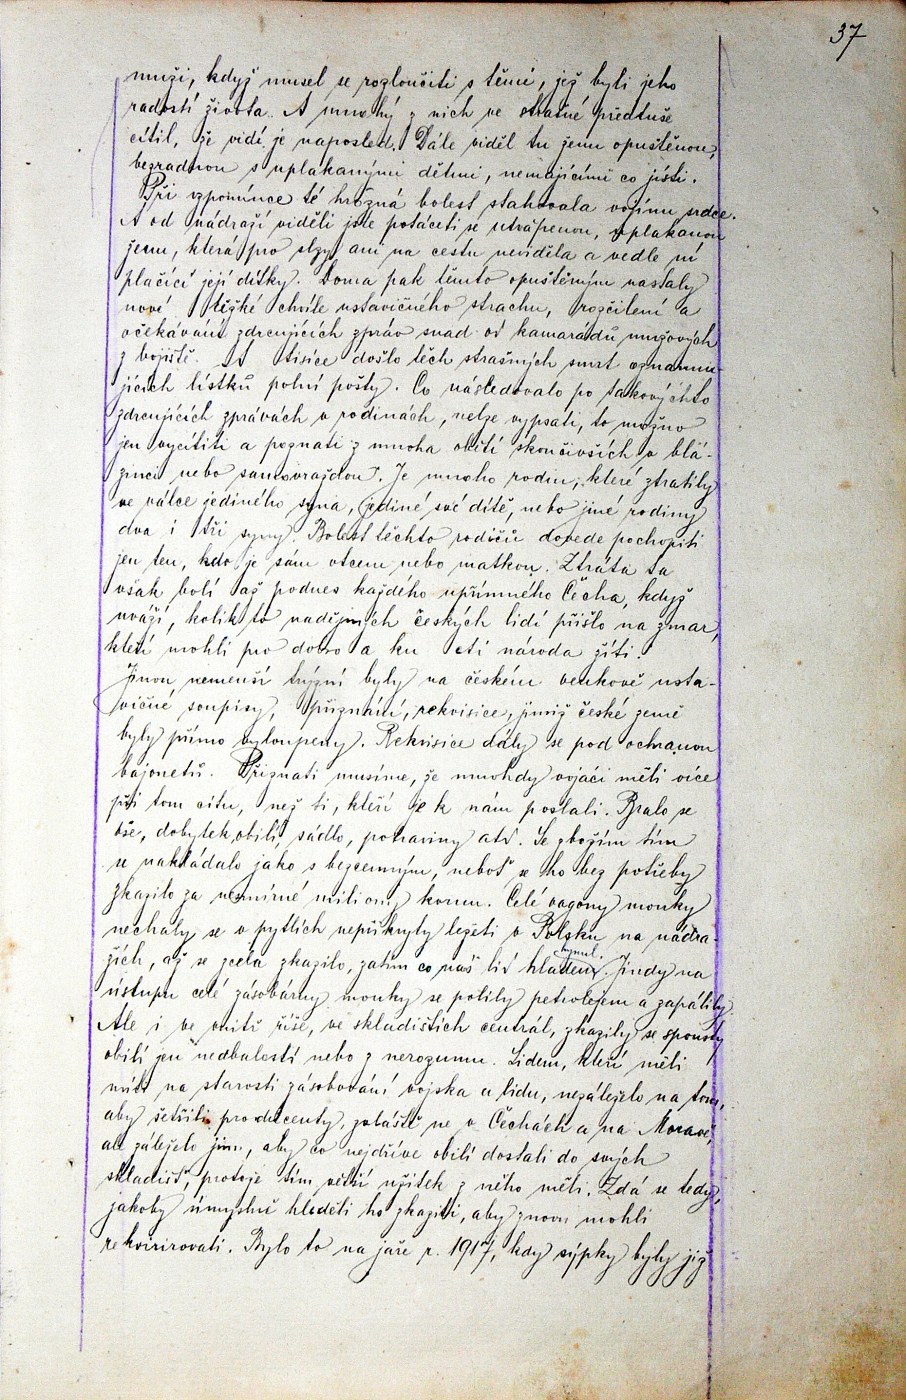 37
muži, když musel se rozloučiti s těmi, jež byli jeho
radostí života. A mnohý z nich ve strašné předtuše
cítil, že vidí je naposled. Dále viděl tu ženu opuštěnou,
bezradnou s uplakanými dětmi, nemajícími co jísti.
Při vzpomínce té hrozná bolest stahovala vojínu srdce.
A od nádraží viděli jste potáceti se utrápenou, uplakanou
ženu, která pro slzy ani na cestu neviděla a vedle ní
plačící její dítky. Doma pak těmto opuštěným nastaly
nové těžké chvíle ustavičného strachu, rozčilení a
očekávání zdrcujících zpráv snad od kamarádů mužových
z bojiště. A tisíce došlo těch strašných smrt oznamu-
jících lístků polní pošty. Co následovalo po takovýchto
zdrcujících zprávách v rodinách, nelze vypsati, to možno
jen vycítiti a poznati z mnoha obětí skončivších v blá-
zinci nebo samovraždou. Je mnoho rodin, které ztratily
ve válce jediného syna, jediné své dítě, nebo jiné rodiny
dva i tři syny. Bolest těchto rodičů dovede pochopiti
jen ten, kdo je sám otcem nebo matkou. Ztráta ta
však bolí až podnes každého upřímného Čecha, když
uváží, kolik to nadějných českých lidí přišlo na zmar,
kteří mohli pro dobro a ku cti národa žíti.
Jinou nemenší trýzní byly na českém venkově usta-
vičné soupisy, přiznání, rekvisice, jimiž české země
byly přímo vyloupeny. Rekvisice dály se pod ochranou
bajonetů. Přiznati musíme, že mnohdy vojáci měli více
při tom citu, než ti, kteří je k nám poslali. Bralo se
vše, dobytek, obilí, sádlo, potraviny atd. Se zbožím tím
se nakládalo jako s bezcenným, neboť se ho bez potřeby
zkazilo za nesmírné miliony korun. Celé vagony mouky
nechaly se v pytlích nepřikryty ležeti v Polsku na nádra-
žích, až se zcela zkazilo, zatím co náš lid hladem hynul. Jindy na
ústupu celé zásobárny mouky se polily petrolejem a zapálily.
Ale i ve vnitř říše, ve skladištích centrál, zkazily se spousty
obilí jen nedbalostí nebo z nerozumu. Lidem, kteří měli
míti na starosti zásobování vojska a lidu, nezáleželo na tom,
aby šetřili producenty, zvláště ne v Čechách a na Moravě,
ale záleželo jim, aby co nejdříve obilí dostali do svých
skladišť, protože tím větší užitek z něho měli. Zdá se tedy,
jakoby úmyslně hleděli ho zkaziti, aby znovu mohli
rekvirirovati. Bylo to na jaře r. 1917, kdy sýpky byly již